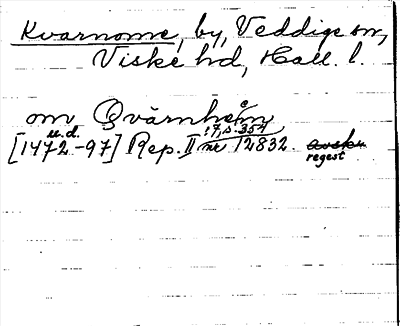 Kvarnome, by, Veddige sn,
Viske hd, Hall. l.
om Qvärnhem
[1472-97] u.d. Rep. II :7, s. 354 nr 12832.
regest